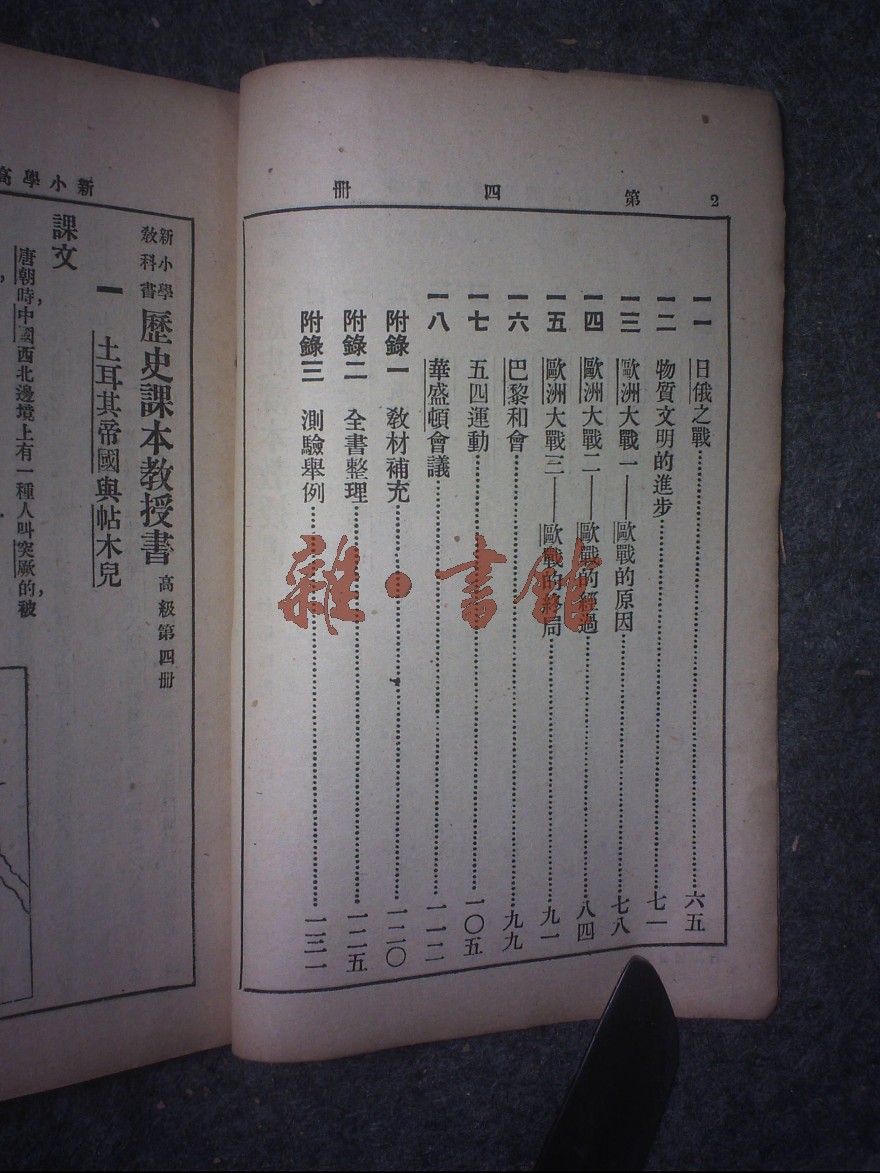 2 第四冊
一一 日俄之戰……六五
一二 物質文明的進步……七一
一三 歐洲大戰一——歐戰的原因……七八
一四 歐洲大戰二——歐戰的經過……八四
一五 歐洲大戰三——歐戰的終局……九一
一六 巴黎和會……九九
一七 五四運動……一〇五
一八 華盛頓會議……一一二
附錄一 教材補充……一二〇
附錄二 全書整理……一二五
附錄三 測驗舉例……一三一
雜·書館
新小學高
新小學教科書 歷史課本教授書 高級第四冊
一 土耳其帝國與帖木兒
課文
唐朝時，中國西北邊境上有一種人叫突厥的，被